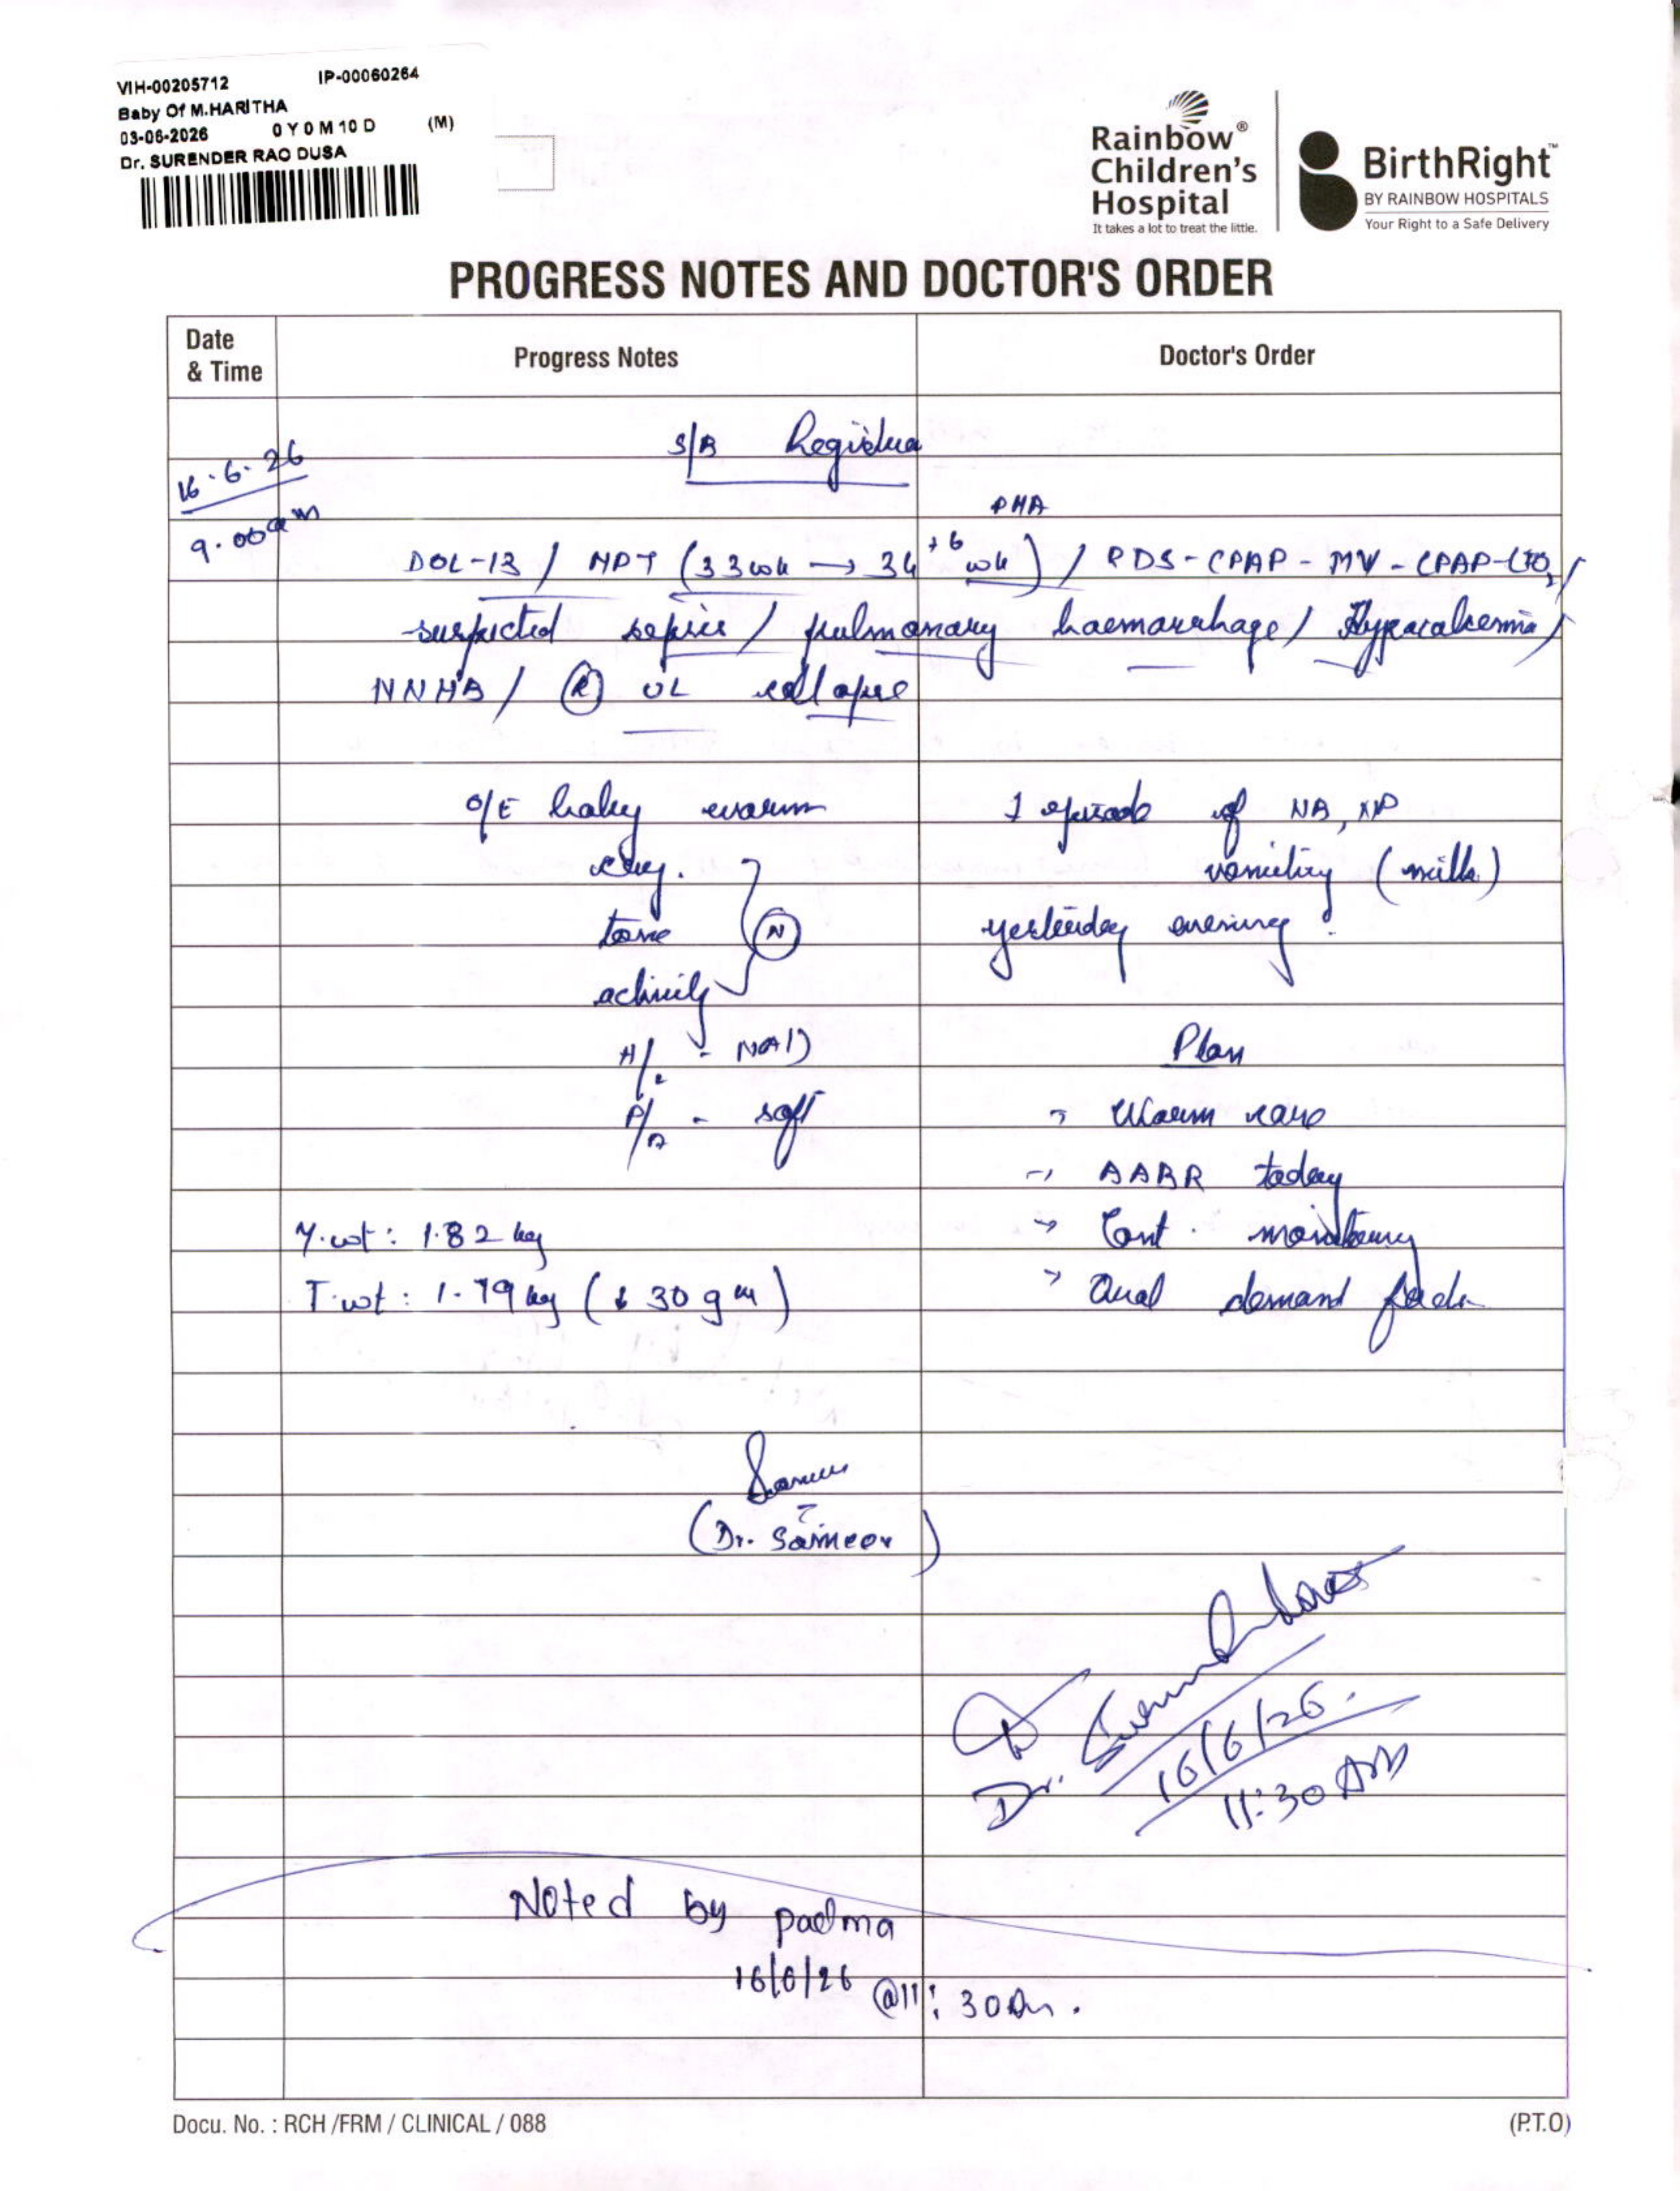 VIH-00205712 IP-00060264
Baby Of M.HARITHA
03-06-2026 0 Y 0 M 10 D (M)
Dr. SURENDER RAO DUSA
Rainbow®
Children's
Hospital
It takes a lot to treat the little.
BirthRight™
BY RAINBOW HOSPITALS
Your Right to a Safe Delivery
PROGRESS NOTES AND DOCTOR'S ORDER
Date & Time Progress Notes Doctor's Order
16.6.26 S/B Registrar
9.00am
PMA
DOL-13 / MPT (33wk → 34+6 wk) / RDS - CPAP - MV - CPAP -
suspected sepsis / pulmonary haemorrhage /
NNHB / (R) UL collapse
O/E baby warm
cry.
tone (N)
activity
- NAD
P/A - soft
Y.wt: 1.82 kg
T.wt: 1.79 kg (↓ 30 gm)
1 episode of NB, NP
vomiting (milk)
yesterday evening
Plan
→ Warm care
→ AABR today
→ Cont. monitoring
→ Oral demand feeds
(Dr. Sameer)
Dr.
16/6/26.
11:30 AM
Noted by padma
16/6/26 @11:30Am.
Docu. No. : RCH /FRM / CLINICAL / 088 (P.T.O)